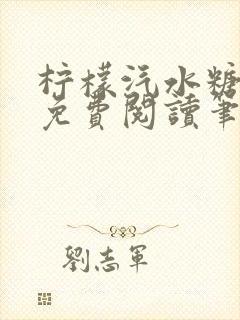 柠檬汽水糖
免費閱讀筆
劉志軍